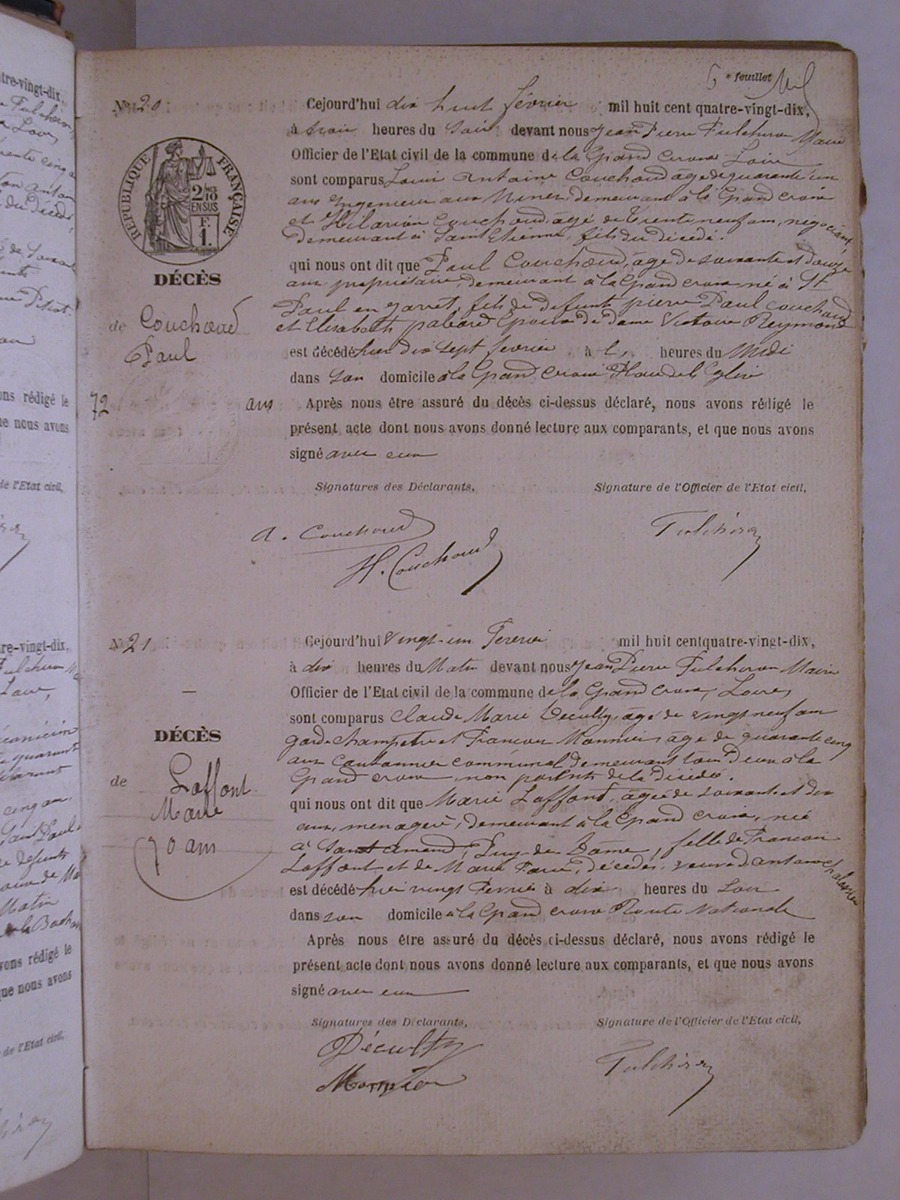 6e feuillet
N° 20
Cejourd'hui dix huit février mil huit cent quatre-vingt-dix,
à trois heures du Soir devant nous Jean Pierre Fulchiron Maire
Officier de l'Etat civil de la commune de la Grand Croix Loire
sont comparus Louis Antoine Couchoud age de quarante un
ans Ingenieur aux Mines, demeurant à la Grand Croix
et Hilarion Couchoud, agé de trente neuf ans, negociant
demeurant à Saint Etienne, fils du décédé.
RÉPUBLIQUE FRANÇAISE
2/10 EN SUS
F. 1.
DÉCÈS
de Couchoud
Paul
72 ans
qui nous ont dit que Paul Couchoud, agé de soixante et douze
ans propriétaire, demeurant à la Grand Croix né à St
Paul en Jarret, fils de défunts pierre Paul Couchoud
et Elisabeth paliard Epoux de Dame Victoire Reymond
est décédé hier dix sept février à heures du Midi
dans son domicile à la Grand Croix Place de l'Eglise
Après nous être assuré du décès ci-dessus déclaré, nous avons rédigé le
présent acte dont nous avons donné lecture aux comparants, et que nous avons
signé avec eux
Signatures des Déclarants, Signature de l'Officier de l'Etat civil,
A. Couchoud Fulchiron
H. Couchoud
N° 21
Cejourd'hui vingt-un Fevrier mil huit cent quatre-vingt-dix,
à dix heures du Matin devant nous Jean Pierre Fulchiron Maire
Officier de l'Etat civil de la commune de la Grand Croix, Loire,
sont comparus Claude Marie Decultty, agé de vingt neuf ans
garde champetre et Francois Monnier age de quarante cinq
ans Cantonnier communal demeurant tous Deux à la
Grand Croix, non parents de la décédée.
DÉCÈS
de Laffont
Marie
70 ans
qui nous ont dit que Marie Laffont, agée de soixante et dix
ans, menagère, demeurant à la Grand Croix, née
à Saint Amand, Puy de Dome, fille de Francois
Laffont et de Marie Faure, décédés, veuve d'antoine
est décédé hier vingt Fevrier à dix heures du Soir
dans son domicile à la Grand Croix Route Nationale
Après nous être assuré du décès ci-dessus déclaré, nous avons rédigé le
présent acte dont nous avons donné lecture aux comparants, et que nous avons
signé avec eux
Signatures des Déclarants, Signature de l'Officier de l'Etat civil,
Décultty Fulchiron